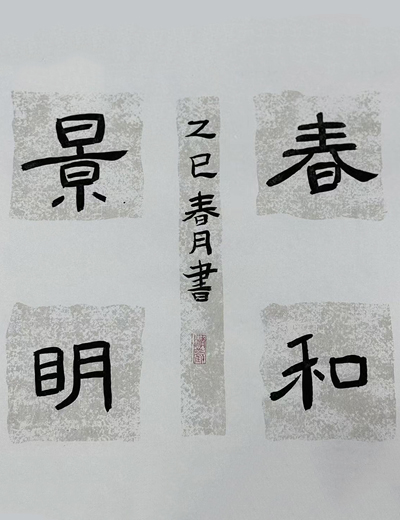 春和
景明
乙巳春月書